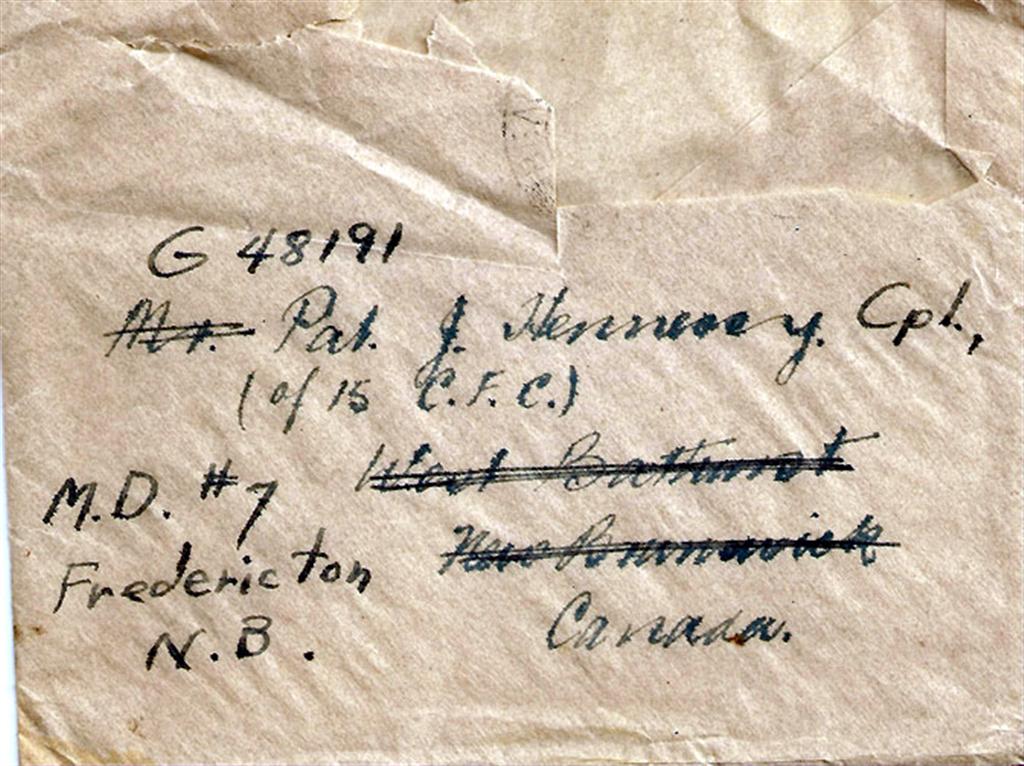 G 48191
Mr. Pat. J. Hennessy. Cpl.,
(of 15 C.F.C.)
West Bathurst
M.D. #7
New Brunswick
Fredericton
Canada.
N.B.